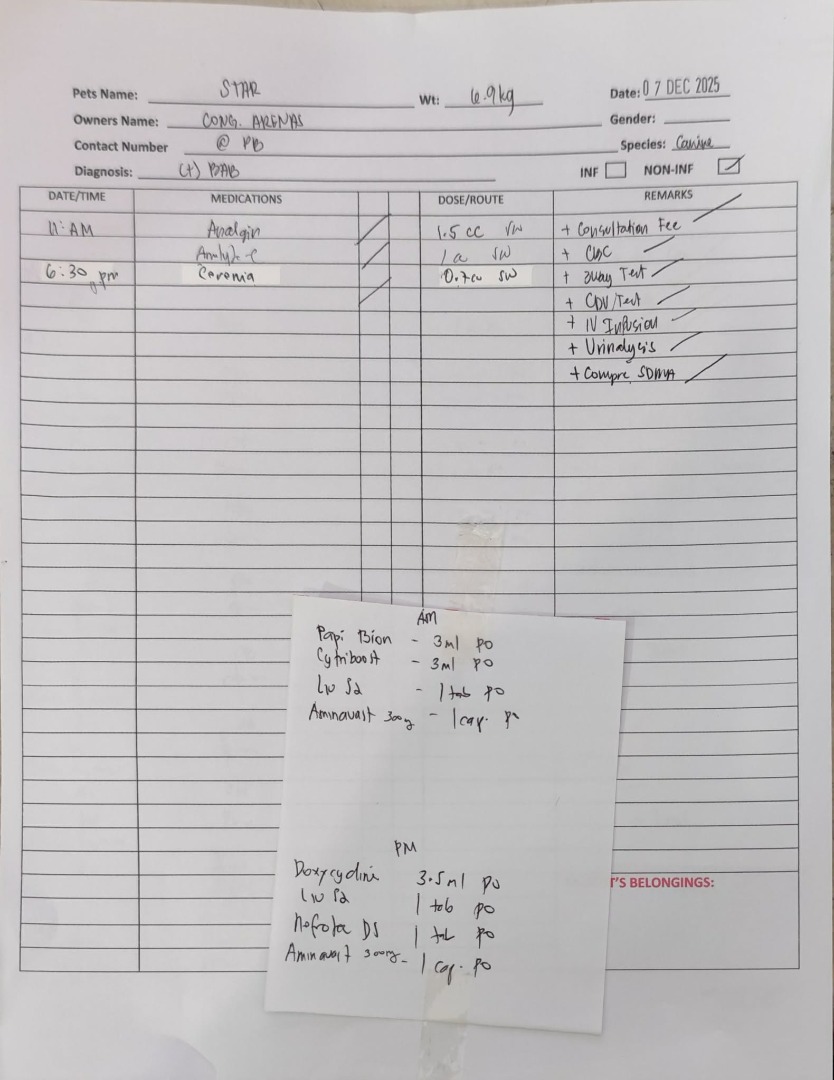 Pets Name: STAR Wt: 6.9kg Date: 07 DEC 2025
Owners Name: CONG. ARENAS Gender:
Contact Number @ PB Species: Canine
Diagnosis: (+) BAB INF NON-INF
DATE/TIME MEDICATIONS DOSE/ROUTE REMARKS
11: AM Analgin 1.5 cc + Consultation Fee
1 cc + CBC
6:30 pm Cerenia 0.7cc + 2way Test
+ CDV/Test
+ IV Infusion
+ Urinalysis
+ Compre SDMA
AM
Papi Bion - 3ml po
Cytriboost - 3ml po
Liv 52 - 1 tab po
Aminavast 300mg - 1 cap. po
PM
Doxycycline 3.5ml po
Liv 52 1 tab po
Nefrotec DS 1 tab po
Aminavast 300mg - 1 cap. po
T'S BELONGINGS: